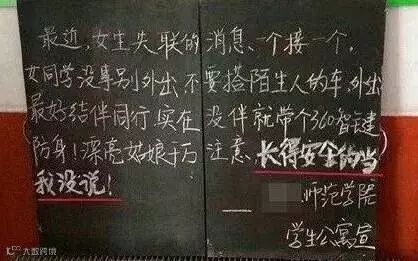 最近,女生失联的消息、一个接一个,
女同学没事别外出,不要搭陌生人的车,外出
最好结伴同行,实在没伴就带个360智键
防身!漂亮姑娘千万注意、长得安全的当
我没说!
师范学院
学生公寓宣
大数跨境